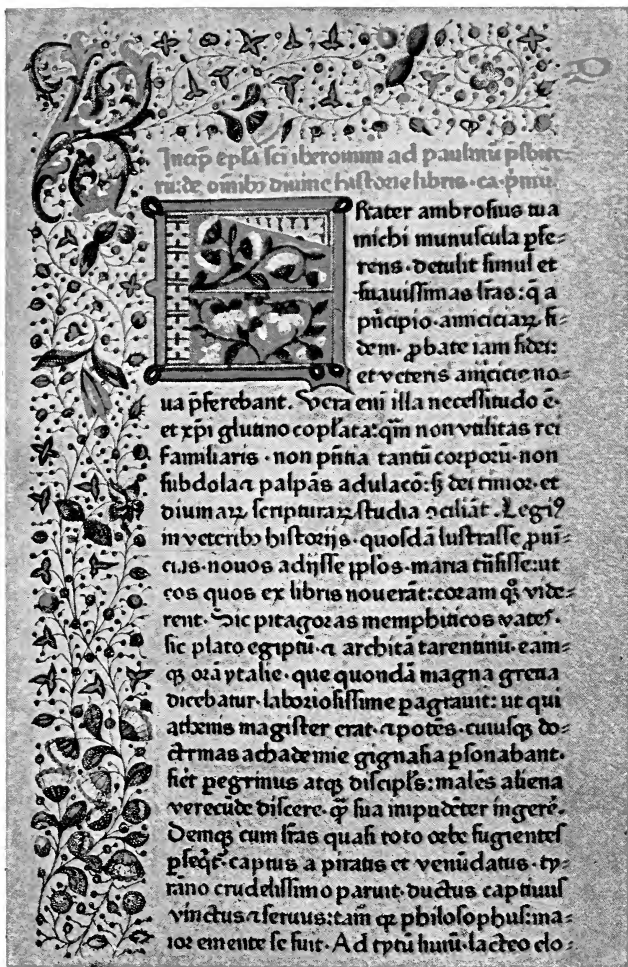 Incip̄ ep̄la sc̄i iheronimi ad paulinū p̄sbite-
rū: de om̄ibꝫ diuine historie libris · ca · p̄mū.
FRater ambrosius tua
michi munuscula ꝑfe=
rens · detulit simul et
suauissimas l̄ras: q̄ a
pn̄cipio · amiciciaꝝ fi=
dem · ꝓbate iam fidei:
et veteris amicicie no=
ua p̄ferebant. Vera eni illa necessitudo ē ·
et xp̄i glutino coplata: qm̄ non vtilitas rei
familiaris · non pn̄tia tantū corporū · non
subdola ⁊ palpās adulacō: sꝫ dei timor · et
diuinaꝝ scripturaꝝ studia ↄciliāt. Legiꝰ
in veteribꝫ historijs · quosdā lustrasse ꝓuī=
cias · nouos adijsse ppl̄os · maria trāsisse: ut
eos quos ex libris nouerāt: coram qꝫ vide=
rent. Sic pitagoras memphiticos vates ·
sic plato egiptū · ⁊ architā tarentinū · eam=
qꝫ orā ytalie · que quondā magna grecia
dicebatur · laboriosissime ꝑagrauit: ut qui
athenis magister erat · ⁊ potēs · cuiusqꝫ do=
ctrinas achademie gignasia ꝑsonabant ·
fiēt ꝑegrinus atqꝫ discipl̄s: malēs aliena
verecūde discere · qꝫ̄ sua impudēter ingerē.
Deniqꝫ cum l̄ras quasi toto orbe fugientes
ꝑseqt̄ · captus a piratis et venūdatus · ty=
rāno crudelissimo paruit · ductus captiuus
vinctus ⁊ seruus: tam̄ qꝫ philosophus: ma=
ior emente se fuit · Ad tytū liuiū · lacteo elo=